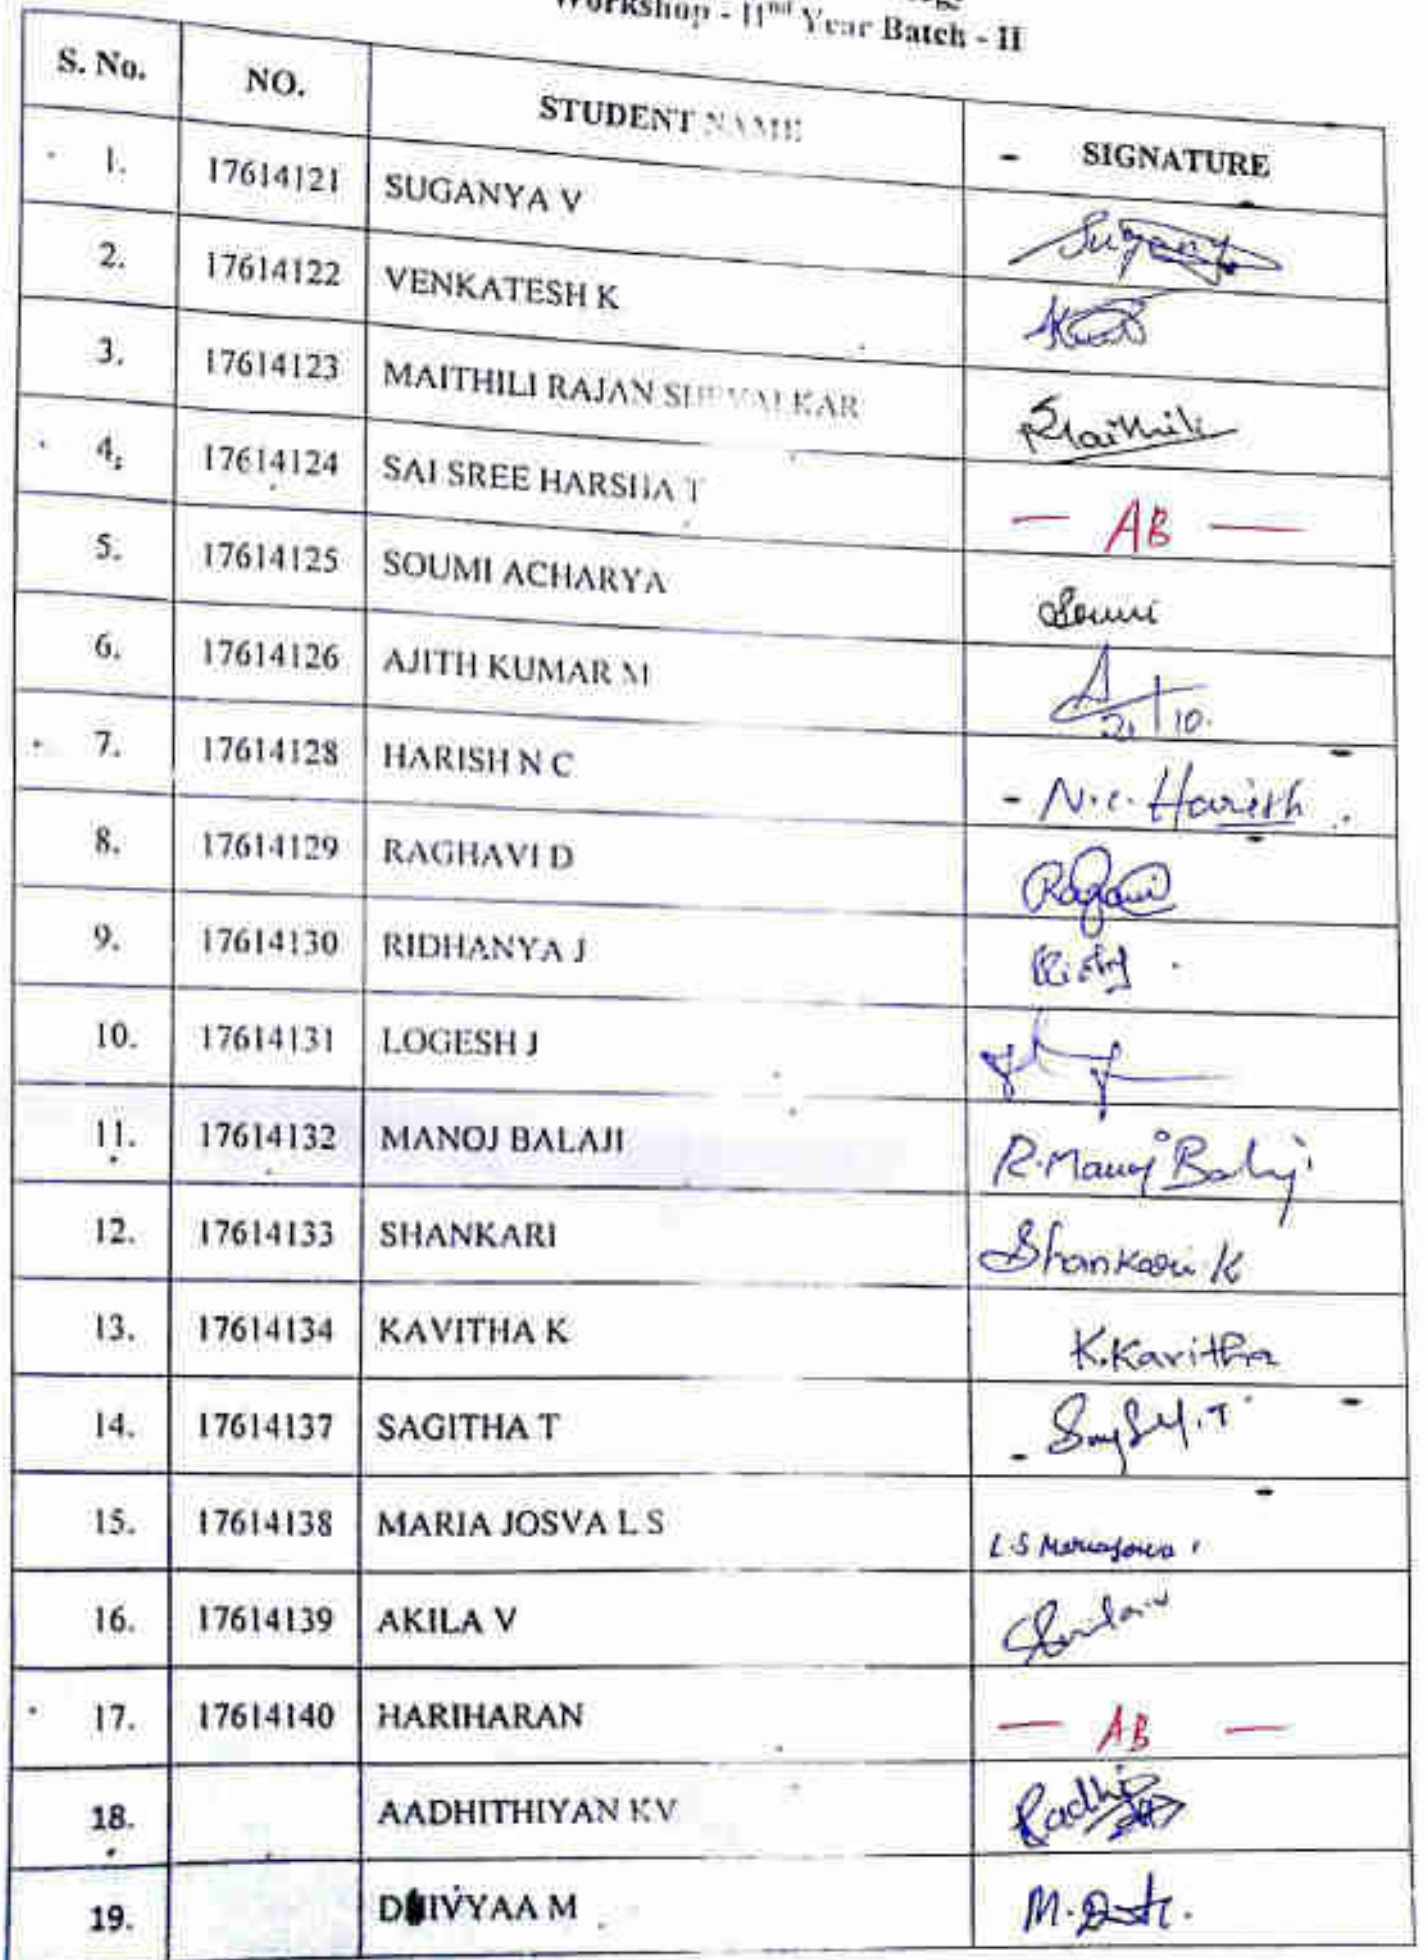 Workshop - IInd Year Batch - II
S. No. NO. STUDENT NAME SIGNATURE
1. 17614121 SUGANYA V
2. 17614122 VENKATESH K
3. 17614123 MAITHILI RAJAN Maithili
4. 17614124 SAI SREE HARSHA T — AB —
5. 17614125 SOUMI ACHARYA Soumi
6. 17614126 AJITH KUMAR M
7. 17614128 HARISH N C N.C. Harish
8. 17614129 RAGHAVI D
9. 17614130 RIDHANYA J
10. 17614131 LOGESH J
11. 17614132 MANOJ BALAJI R. Manoj Balaji
12. 17614133 SHANKARI Shankari K
13. 17614134 KAVITHA K K. Kavitha
14. 17614137 SAGITHA T
15. 17614138 MARIA JOSVA L S L.S Mariajosva
16. 17614139 AKILA V
17. 17614140 HARIHARAN — AB —
18. AADHITHIYAN KV
19. DHIVYAA M